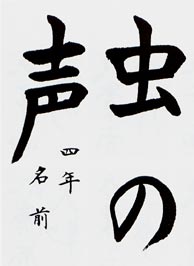 虫の
声
四年
名前